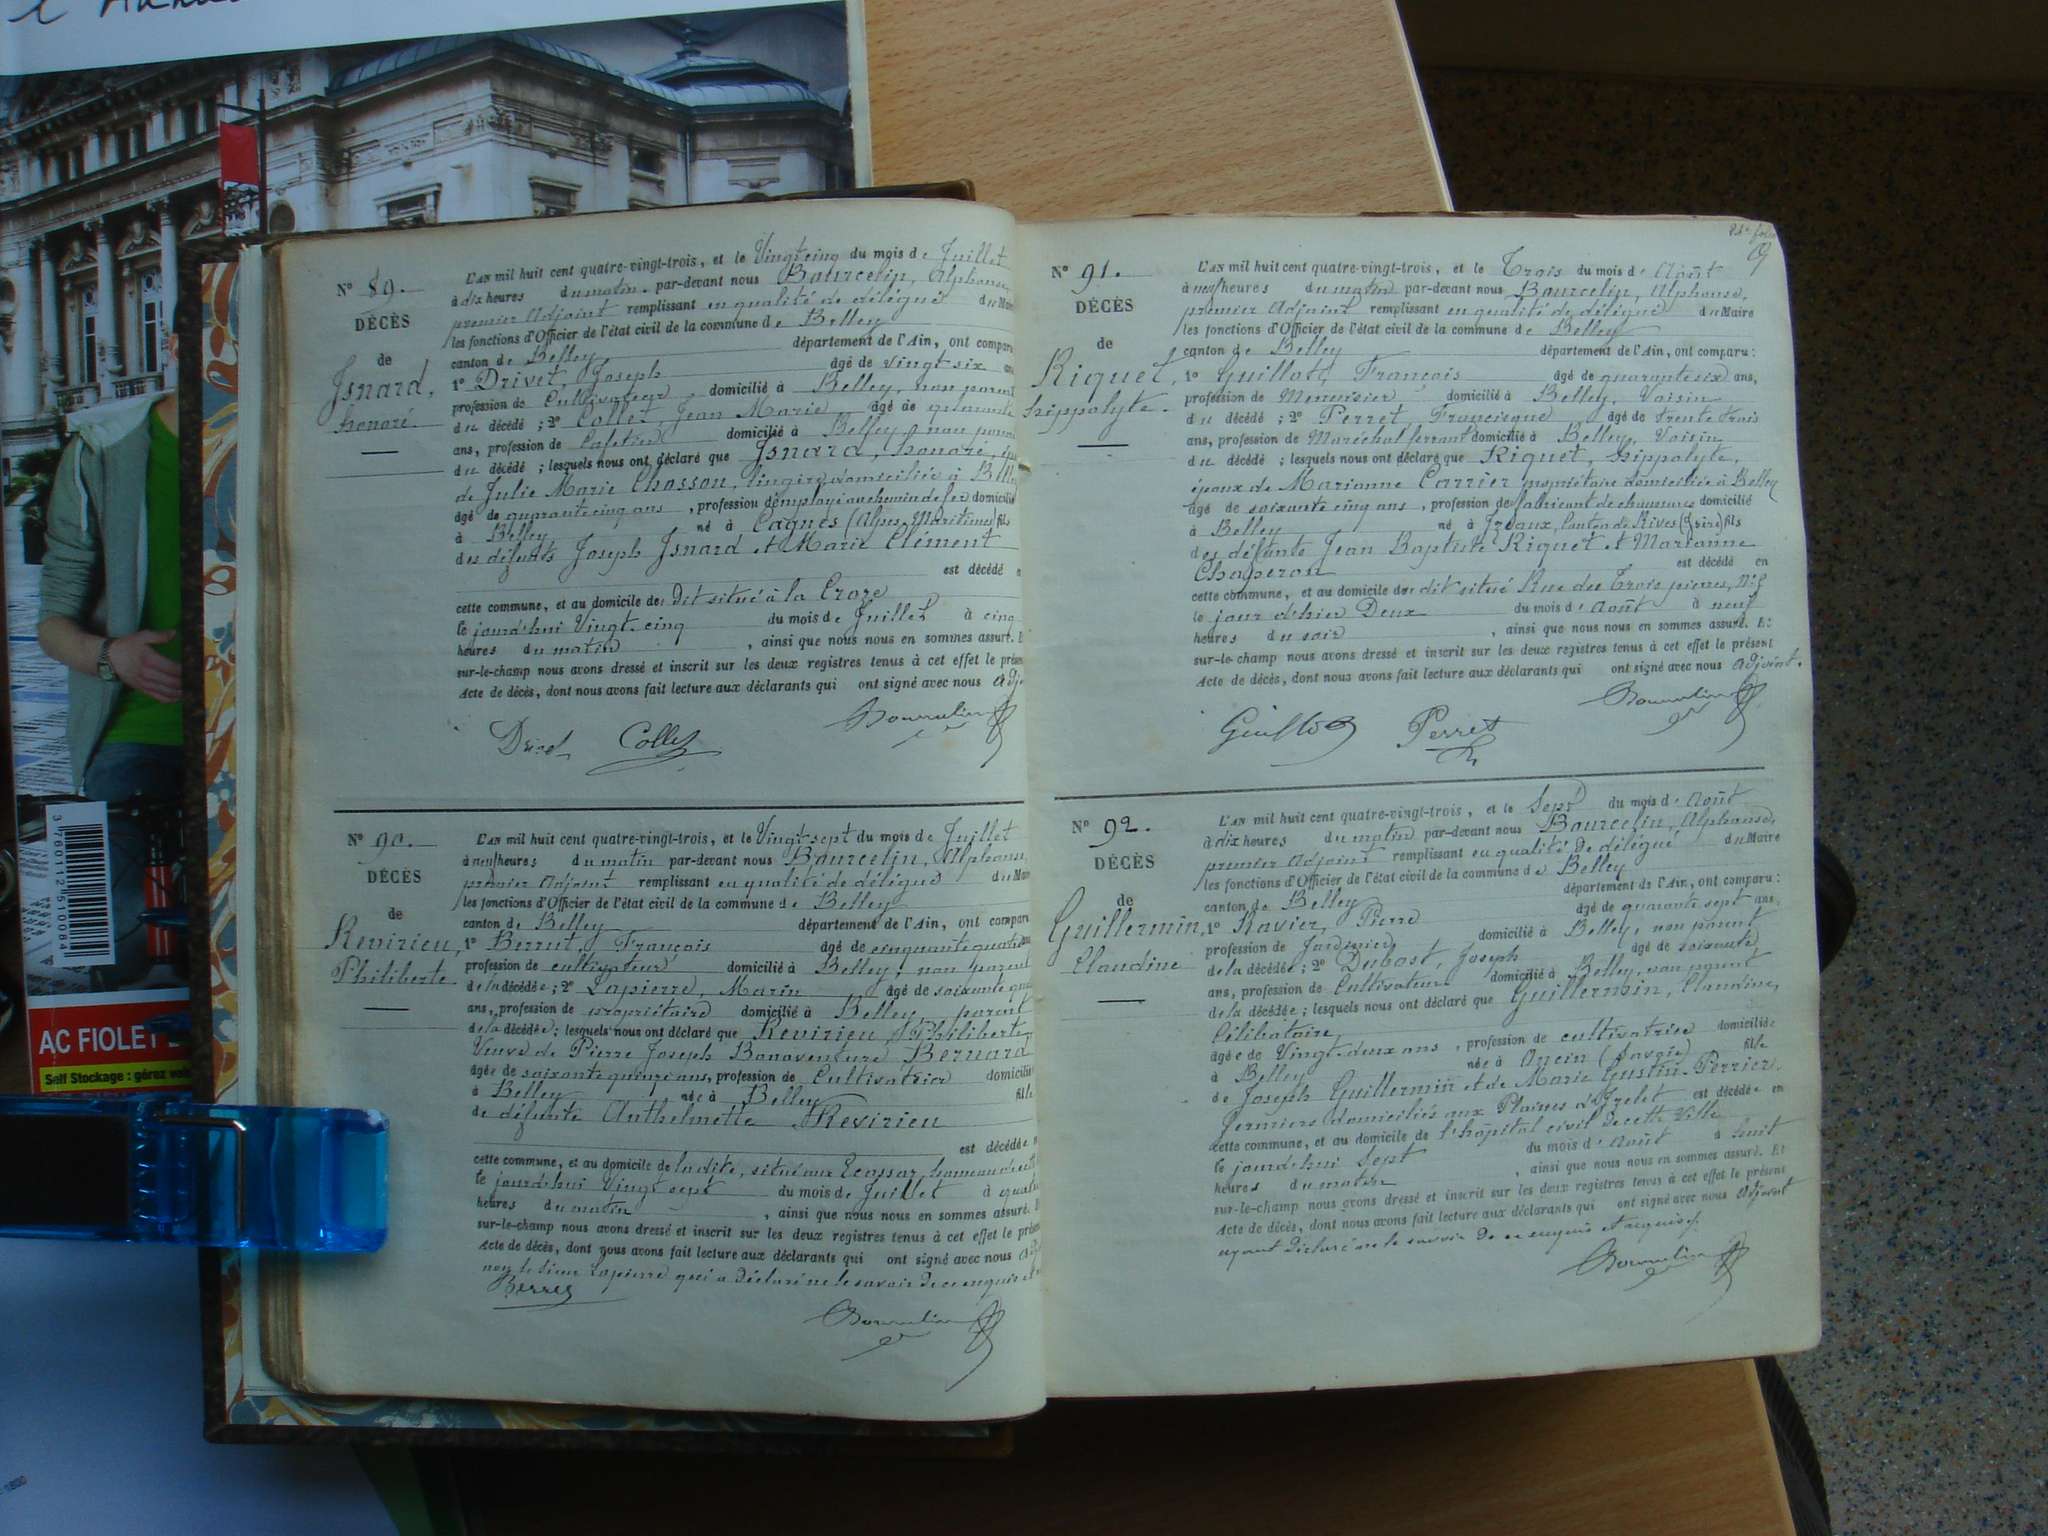 N° 89.
DÉCÈS
de
Isnard,
honoré
L'AN mil huit cent quatre-vingt-trois, et le Vingt cinq du mois de Juillet
à dix heures du matin par-devant nous Bourcelin, Alphonse,
premier Adjoint remplissant en qualité de délégué du Maire
les fonctions d'Officier de l'état civil de la commune de Belley
canton de Belley département de l'Ain, ont comparu
1° Drivet, Joseph âgé de vingt six ans
profession de Cultivateur domicilié à Belley, non parent
du décédé ; 2° Collet, Jean Marie, âgé de
ans, profession de Cafetier domicilié à Belley, non parent
du décédé ; lesquels nous ont déclaré que Isnard, honoré,
de Julie Marie Chosson, lingère domiciliée à Belley
âgé de quarante cinq ans, profession d'employé au chemin de fer domicilié
à Belley né à Cagnes (Alpes-Maritimes) fils
des défunts Joseph Isnard et Marie Clément
est décédé en
cette commune, et au domicile du dit situé à la Croze
le jourd'hui Vingt-cinq du mois de Juillet à cinq
heures du matin, ainsi que nous nous en sommes assuré. E
sur-le-champ nous avons dressé et inscrit sur les deux registres tenus à cet effet le présen
Acte de décès, dont nous avons fait lecture aux déclarants qui ont signé avec nous Adjo
Drivet Collet
N° 90.
DÉCÈS
de
Revirieu,
Philiberte
L'AN mil huit cent quatre-vingt-trois, et le Vingt sept du mois de Juillet
à neuf heures du matin par-devant nous Bourcelin, Alphonse,
premier Adjoint remplissant en qualité de délégué du Maire
les fonctions d'Officier de l'état civil de la commune de Belley
canton de Belley département de l'Ain, ont comparu
1° Berrut, François âgé de cinquante quatre ans
profession de cultivateur domicilié à Belley, non parent
de la décédée ; 2° Lapierre, Marin âgé de soixante
ans, profession de propriétaire domicilié à Belley, parent
de la décédée ; lesquels nous ont déclaré que Revirieu, Philiberte
Veuve de Pierre Joseph Bonaventure Bernard
âgée de soixante quinze ans, profession de Cultivatrice domicilié
à Belley née à Belley fille
de défunte Anthelmette Revirieu
est décédée
cette commune, et au domicile de ladite, situé aux Ecassaz, hameau de cette
le jourd'hui Vingt sept du mois de Juillet à quatre
heures du matin, ainsi que nous nous en sommes assuré. E
sur-le-champ nous avons dressé et inscrit sur les deux registres tenus à cet effet le présen
Acte de décès, dont nous avons fait lecture aux déclarants qui ont signé avec nous
non le sieur Lapierre qui a déclaré ne le savoir de ce enquis et
N° 91.
DÉCÈS
de
Riquet,
hippolyte.
L'AN mil huit cent quatre-vingt-trois, et le Trois du mois d'Août
à neuf heures du matin par-devant nous Bourcelin, Alphonse,
premier Adjoint remplissant en qualité de délégué du Maire
les fonctions d'Officier de l'état civil de la commune de Belley
canton de Belley département de l'Ain, ont comparu :
1° Guillot, François âgé de quarante six ans,
profession de Menuisier domicilié à Belley, Voisin
du décédé ; 2° Perret, Francisque âgé de trente trois
ans, profession de Maréchal ferrant domicilié à Belley, Voisin
du décédé ; lesquels nous ont déclaré que Riquet, hippolyte,
époux de Marianne Carrier propriétaire domiciliée à Belley
âgé de soixante cinq ans, profession de fabricant de chaussures domicilié
à Belley né à Izeaux, Canton de Rives (Isère) fils
des défunts Jean Baptiste Riquet et Marianne
Chaperon est décédé en
cette commune, et au domicile du dit situé Rue des Trois pierres, N°
le jour d'hier Deux du mois d'Août à neuf
heures du soir, ainsi que nous nous en sommes assuré. Et
sur-le-champ nous avons dressé et inscrit sur les deux registres tenus à cet effet le présent
Acte de décès, dont nous avons fait lecture aux déclarants qui ont signé avec nous Adjoint.
Guillot Perret
N° 92.
DÉCÈS
de
Guillermin,
Claudine
L'AN mil huit cent quatre-vingt-trois, et le Sept du mois d'Août
à dix heures du matin par-devant nous Bourcelin, Alphonse,
premier Adjoint remplissant en qualité de délégué du Maire
les fonctions d'Officier de l'état civil de la commune de Belley
canton de Belley département de l'Ain, ont comparu :
1° Ravier, Pierre âgé de quarante sept ans,
profession de Jardinier domicilié à Belley, non parent
de la décédée ; 2° Dubost, Joseph âgé de soixante
ans, profession de Cultivateur domicilié à Belley, non parent
de la décédée ; lesquels nous ont déclaré que Guillermin, Claudine,
Célibataire
âgée de Vingt-deux ans, profession de cultivatrice domiciliée
à Belley née à Oncin (Savoie) fille
de Joseph Guillermin et de Marie Gustin-Perrier,
fermiers domiciliés aux Plaines d'Izelet est décédée en
cette commune, et au domicile de l'hôpital civil de cette Ville
le jourd'hui Sept du mois d'Août à huit
heures du matin, ainsi que nous nous en sommes assuré. Et
sur-le-champ nous avons dressé et inscrit sur les deux registres tenus à cet effet le présent
Acte de décès, dont nous avons fait lecture aux déclarants qui ont signé avec nous Adjoint
ayant déclaré ne le savoir de ce enquis et requis.
3 760112 510084
AC FIOLET
Self Stockage : gérez